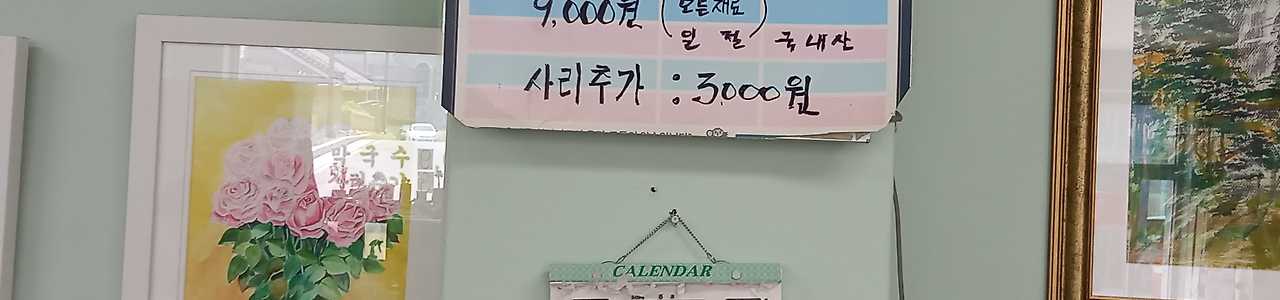 9,000원 (모든재료
일절 국내산)
사리추가 : 3,000원
막국수
CALENDAR